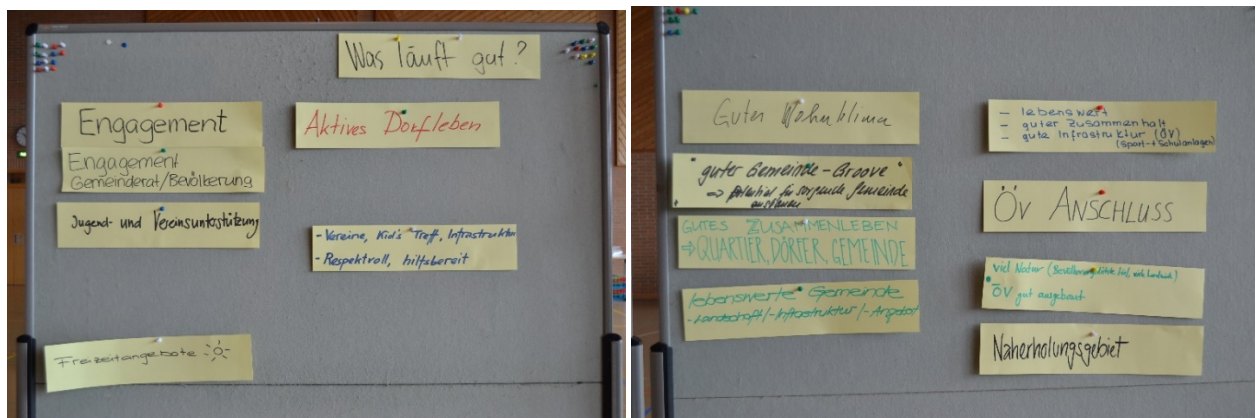 Was läuft gut?
Engagement
Engagement
Gemeinderat/Bevölkerung
Jugend- und Vereinsunterstützung
Freizeitangebote
Aktives Dorfleben
- Vereine, Kid's Treff, Infrastruktur
- Respektvoll, hilfsbereit
Guter Wohnklima
guter Gemeinde-Groove
⇒ Potential für sorgende Gemeinde
ausbauen
GUTES ZUSAMMENLEBEN
⇒ QUARTIER, DÖRFER, GEMEINDE
lebenswerte Gemeinde
- Landschaft/- Infrastruktur/- Angebot
- lebenswert
- guter Zusammenhalt
- gute Infrastruktur (ÖV)
(Sport- + Schulanlagen)
ÖV ANSCHLUSS
viel Natur (Bevölkerung
ÖV gut ausgebaut
Naherholungsgebiet